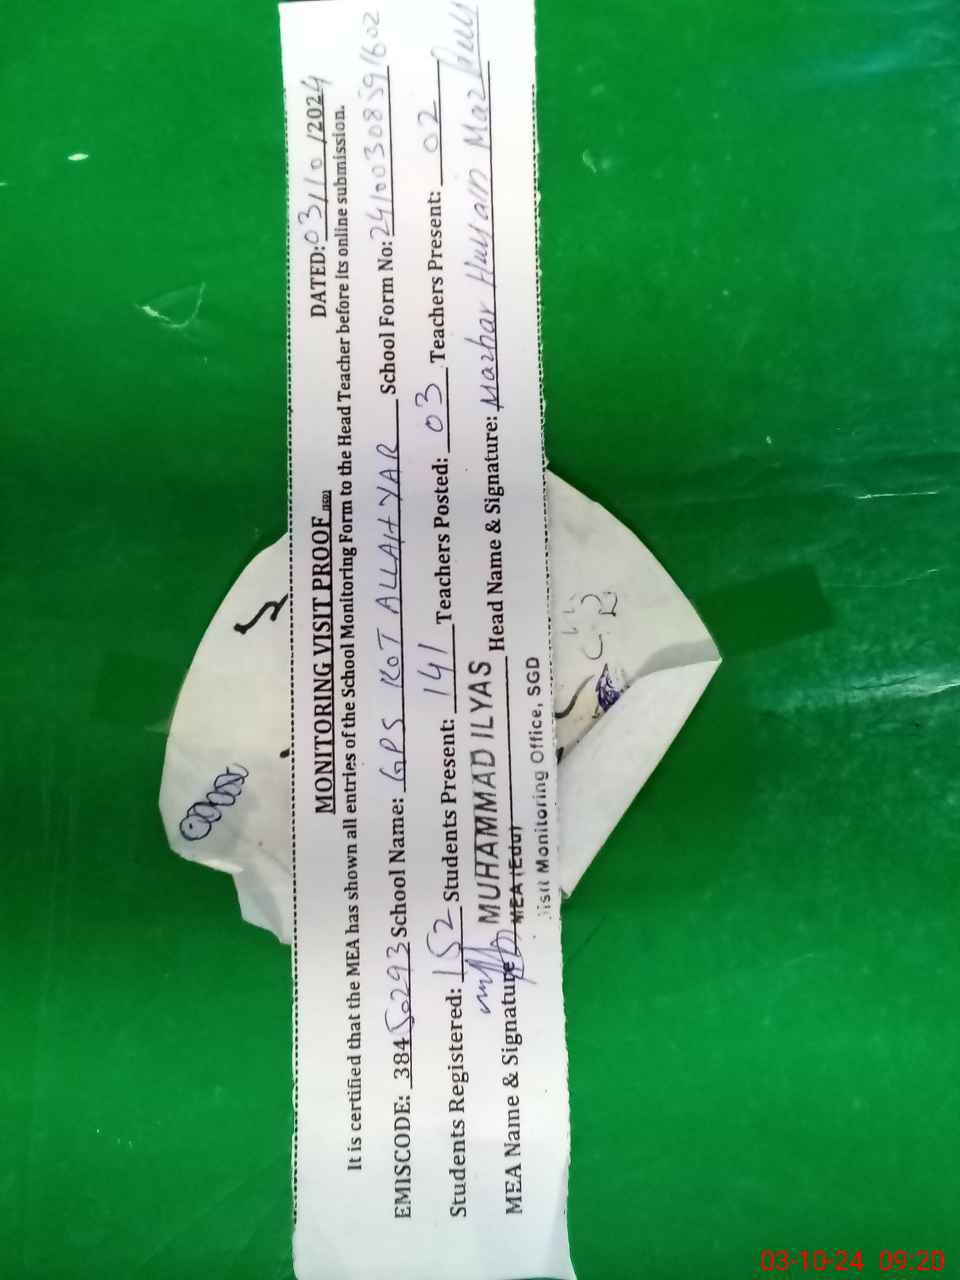 MONITORING VISIT PROOF
DATED: 03/10/2024
It is certified that the MEA has shown all entries of the School Monitoring Form to the Head Teacher before its online submission.
EMISCODE: 38450293 School Name: GPS KOT ALLAH YAR School Form No: 24100308591602
Students Registered: 152 Students Present: 141 Teachers Posted: 03 Teachers Present: 02
MEA Name & Signature MUHAMMAD ILYAS Head Name & Signature: Mazhar Hussain Mazhar
MEA (Edu)
Monitoring Office, SGD
03-10-24 09:20